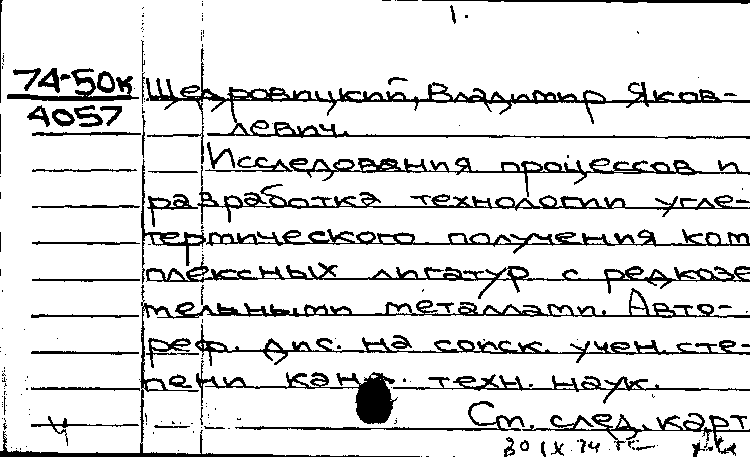 1.
74-50к Щедровицкий, Владимир Яков-
4057 левич.
Исследования процессов и
разработка технологии угле-
термического получения ком
плексных лигатур с редкозе
мельными металлами. Авто-
реф. дис. на соиск. учен. сте-
пени канд. техн. наук.
См. след. карт
4 30 IX 74